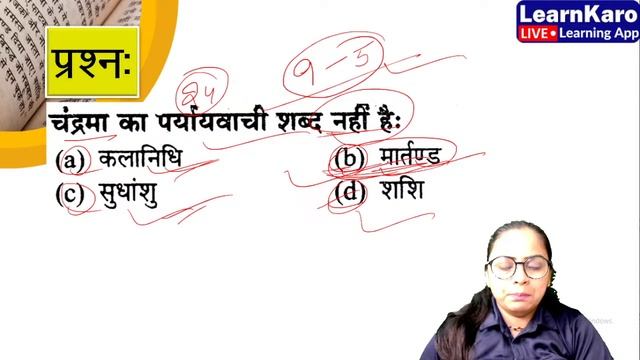 LearnKaro
LIVE • Learning App
प्रश्न:
9-5
चंद्रमा का पर्यायवाची शब्द नहीं है:
(a) कलानिधि
(b) मार्तण्ड
(c) सुधांशु
(d) शशि